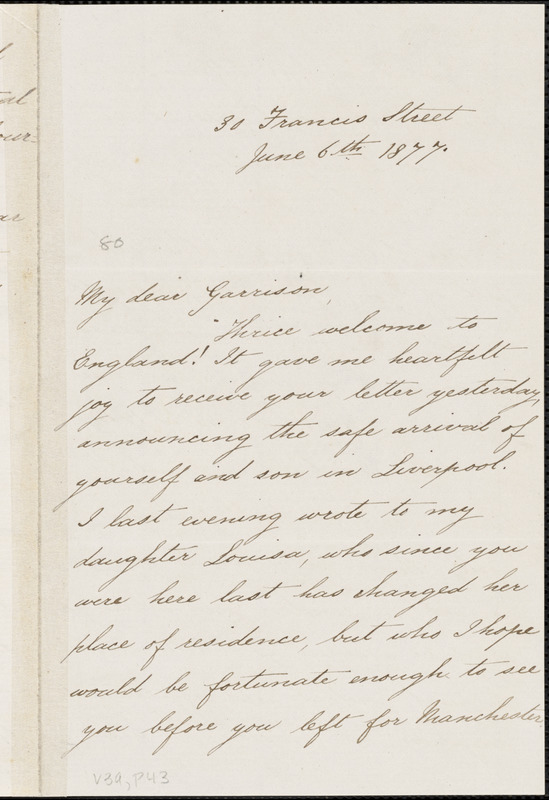 30 Francis Street
June 6th 1877.
80
My dear Garrison,
Thrice welcome to
England! It gave me heartfelt
joy to receive your letter yesterday,
announcing the safe arrival of
yourself and son in Liverpool.
I last evening wrote to my
daughter Louisa, who since you
were here last has changed her
place of residence, but who I hope
would be fortunate enough to see
you before you left for Manchester.
V39, P43